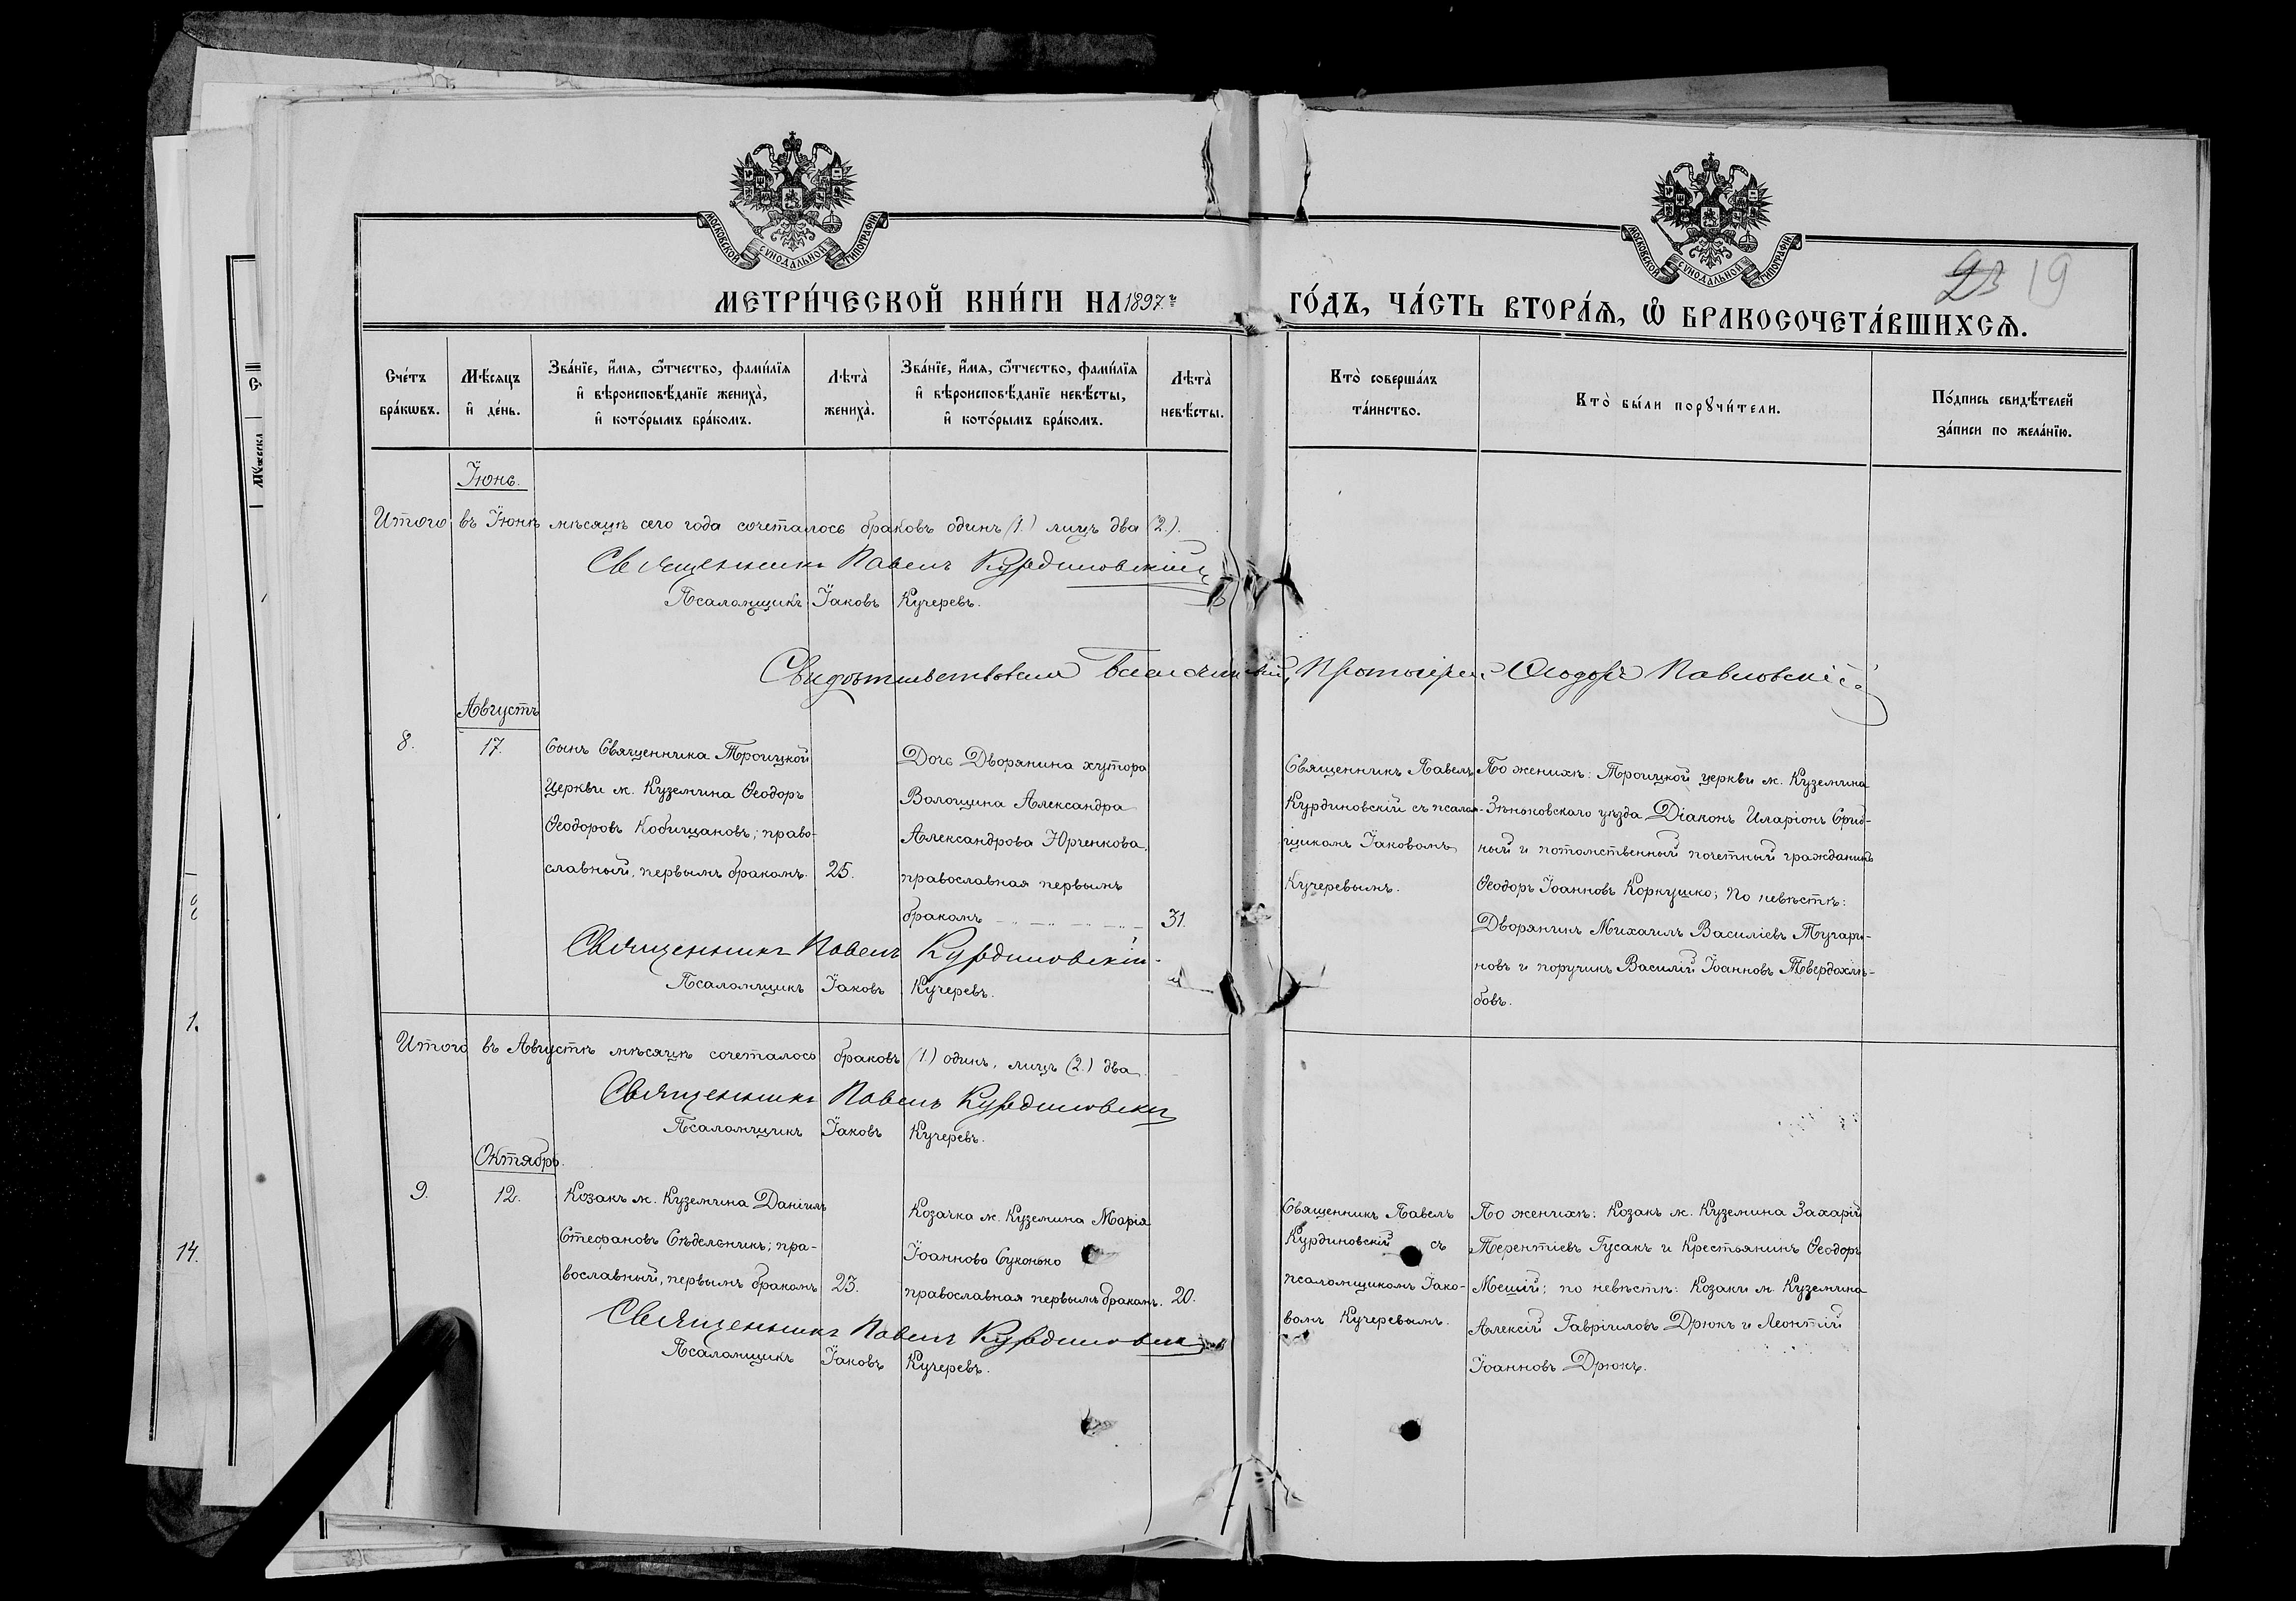 МОСКОВСКОЙ СѴНОДАЛЬНОЙ ТИПОГРАФІИ
МОСКОВСКОЙ СѴНОДАЛЬНОЙ ТИПОГРАФІИ
23 19
МЕТРИ́ЧЕСКОЙ КНИ́ГИ НА 1897.й ГО́ДЪ, ЧА́СТЬ ВТОРА́Ѧ, Ѿ БРАКОСОЧЕТА́ВШИХСѦ.
Сче́тъ
бра́кѡвъ.
Мѣ́сѧцъ
и҆ де́нь.
Зва́нїе, и҆́мѧ, ѻ҆́тчество, фами́лїѧ
и҆ вѣроисповѣ́данїе жениха̀,
и҆ кото́рымъ бра́комъ.
Лѣта̀
жениха̀.
Зва́нїе, и҆́мѧ, ѻ҆́тчество, фами́лїѧ
и҆ вѣроисповѣ́данїе невѣ́сты,
и҆ кото́рымъ бра́комъ.
Лѣта̀
невѣ́сты.
Кто̀ соверша́лъ
та́инство.
Кто̀ бы́ли порꙋчи́тели.
По́дпись свидѣ́телей
за́писи по жела́нїю.
Іюнь.
Итого въ Іюнѣ мѣсяцѣ сего года сочеталось браковъ одинъ (1.) лицъ два (2.).
Священникъ Павелъ Курдиновскій
Псаломщикъ Іаковъ Кучеревъ.
Свидѣтельствовалъ Благочинный, Протоіерей Ѳеодоръ Павловскій
Августъ
8.
17.
Сынъ Священника Троицкой
Церкви м. Куземина Ѳеодоръ
Ѳеодоровъ Кобищановъ; право-
славный, первымъ бракомъ.
25.
Дочь Дворянина хутора
Волощина Александра
Александрова Юрченкова.
православная первымъ
бракомъ
31.
Священникъ Павелъ
Курдиновскій съ псалом-
щикомъ Іаковомъ
Кучеревымъ.
По женихѣ: Троицкой церкви м. Куземина
Зѣньковскаго уѣзда Діаконъ Иларіонъ Ерид-
ный и потомственный почетный гражданинъ
Ѳеодоръ Іоанновъ Коркушко; По невѣстѣ:
Дворянинъ Михаилъ Василіевъ Тугари-
новъ и поручикъ Василій Іоанновъ Твердохлѣ-
бовъ.
Священникъ Павелъ Курдиновскій
Псаломщикъ Іаковъ Кучеревъ.
Итого въ Августѣ мѣсяцѣ сочеталось браковъ (1.) одинъ, лицъ (2.) два.
Священникъ Павелъ Курдиновскій
Псаломщикъ Іаковъ Кучеревъ.
Октябрь.
9.
12.
Козакъ м. Куземина Даніилъ
Стефановъ Сѣделєникъ; пра-
вославный, первымъ бракомъ
23.
Козачка м. Куземина Марія
Іоаннова Суконько
православная первымъ бракомъ.
20.
Священникъ Павелъ
Курдиновскій съ
псаломщикомъ Іако-
вомъ Кучеревымъ.
По женихѣ: Козакъ м. Куземина Захарій
Терентіевъ Гусакъ и Крестьянинъ Ѳеодоръ
Меший; по невѣстѣ: Козаки м. Куземина
Алексій Гавріиловъ Дрюкъ и Леонтій
Іоанновъ Дрюкъ.
Священникъ Павелъ Курдиновскій
Псаломщикъ Іаковъ Кучеревъ.
1.
14.